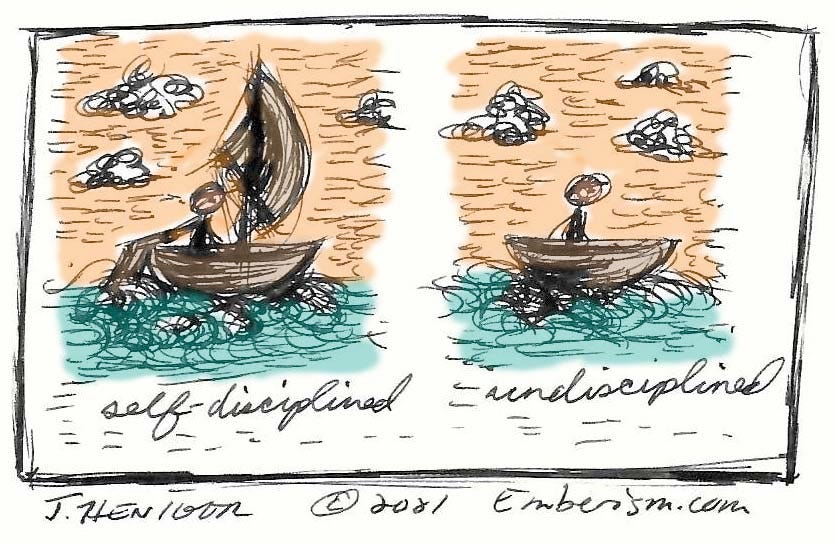 self-disciplined
undisciplined
J. HENIGOR © 2021 Emberism.com